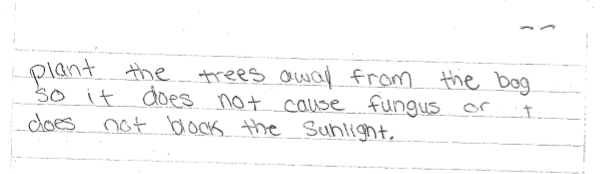 plant the trees away from the bog
so it does not cause fungus or
does not block the sunlight.